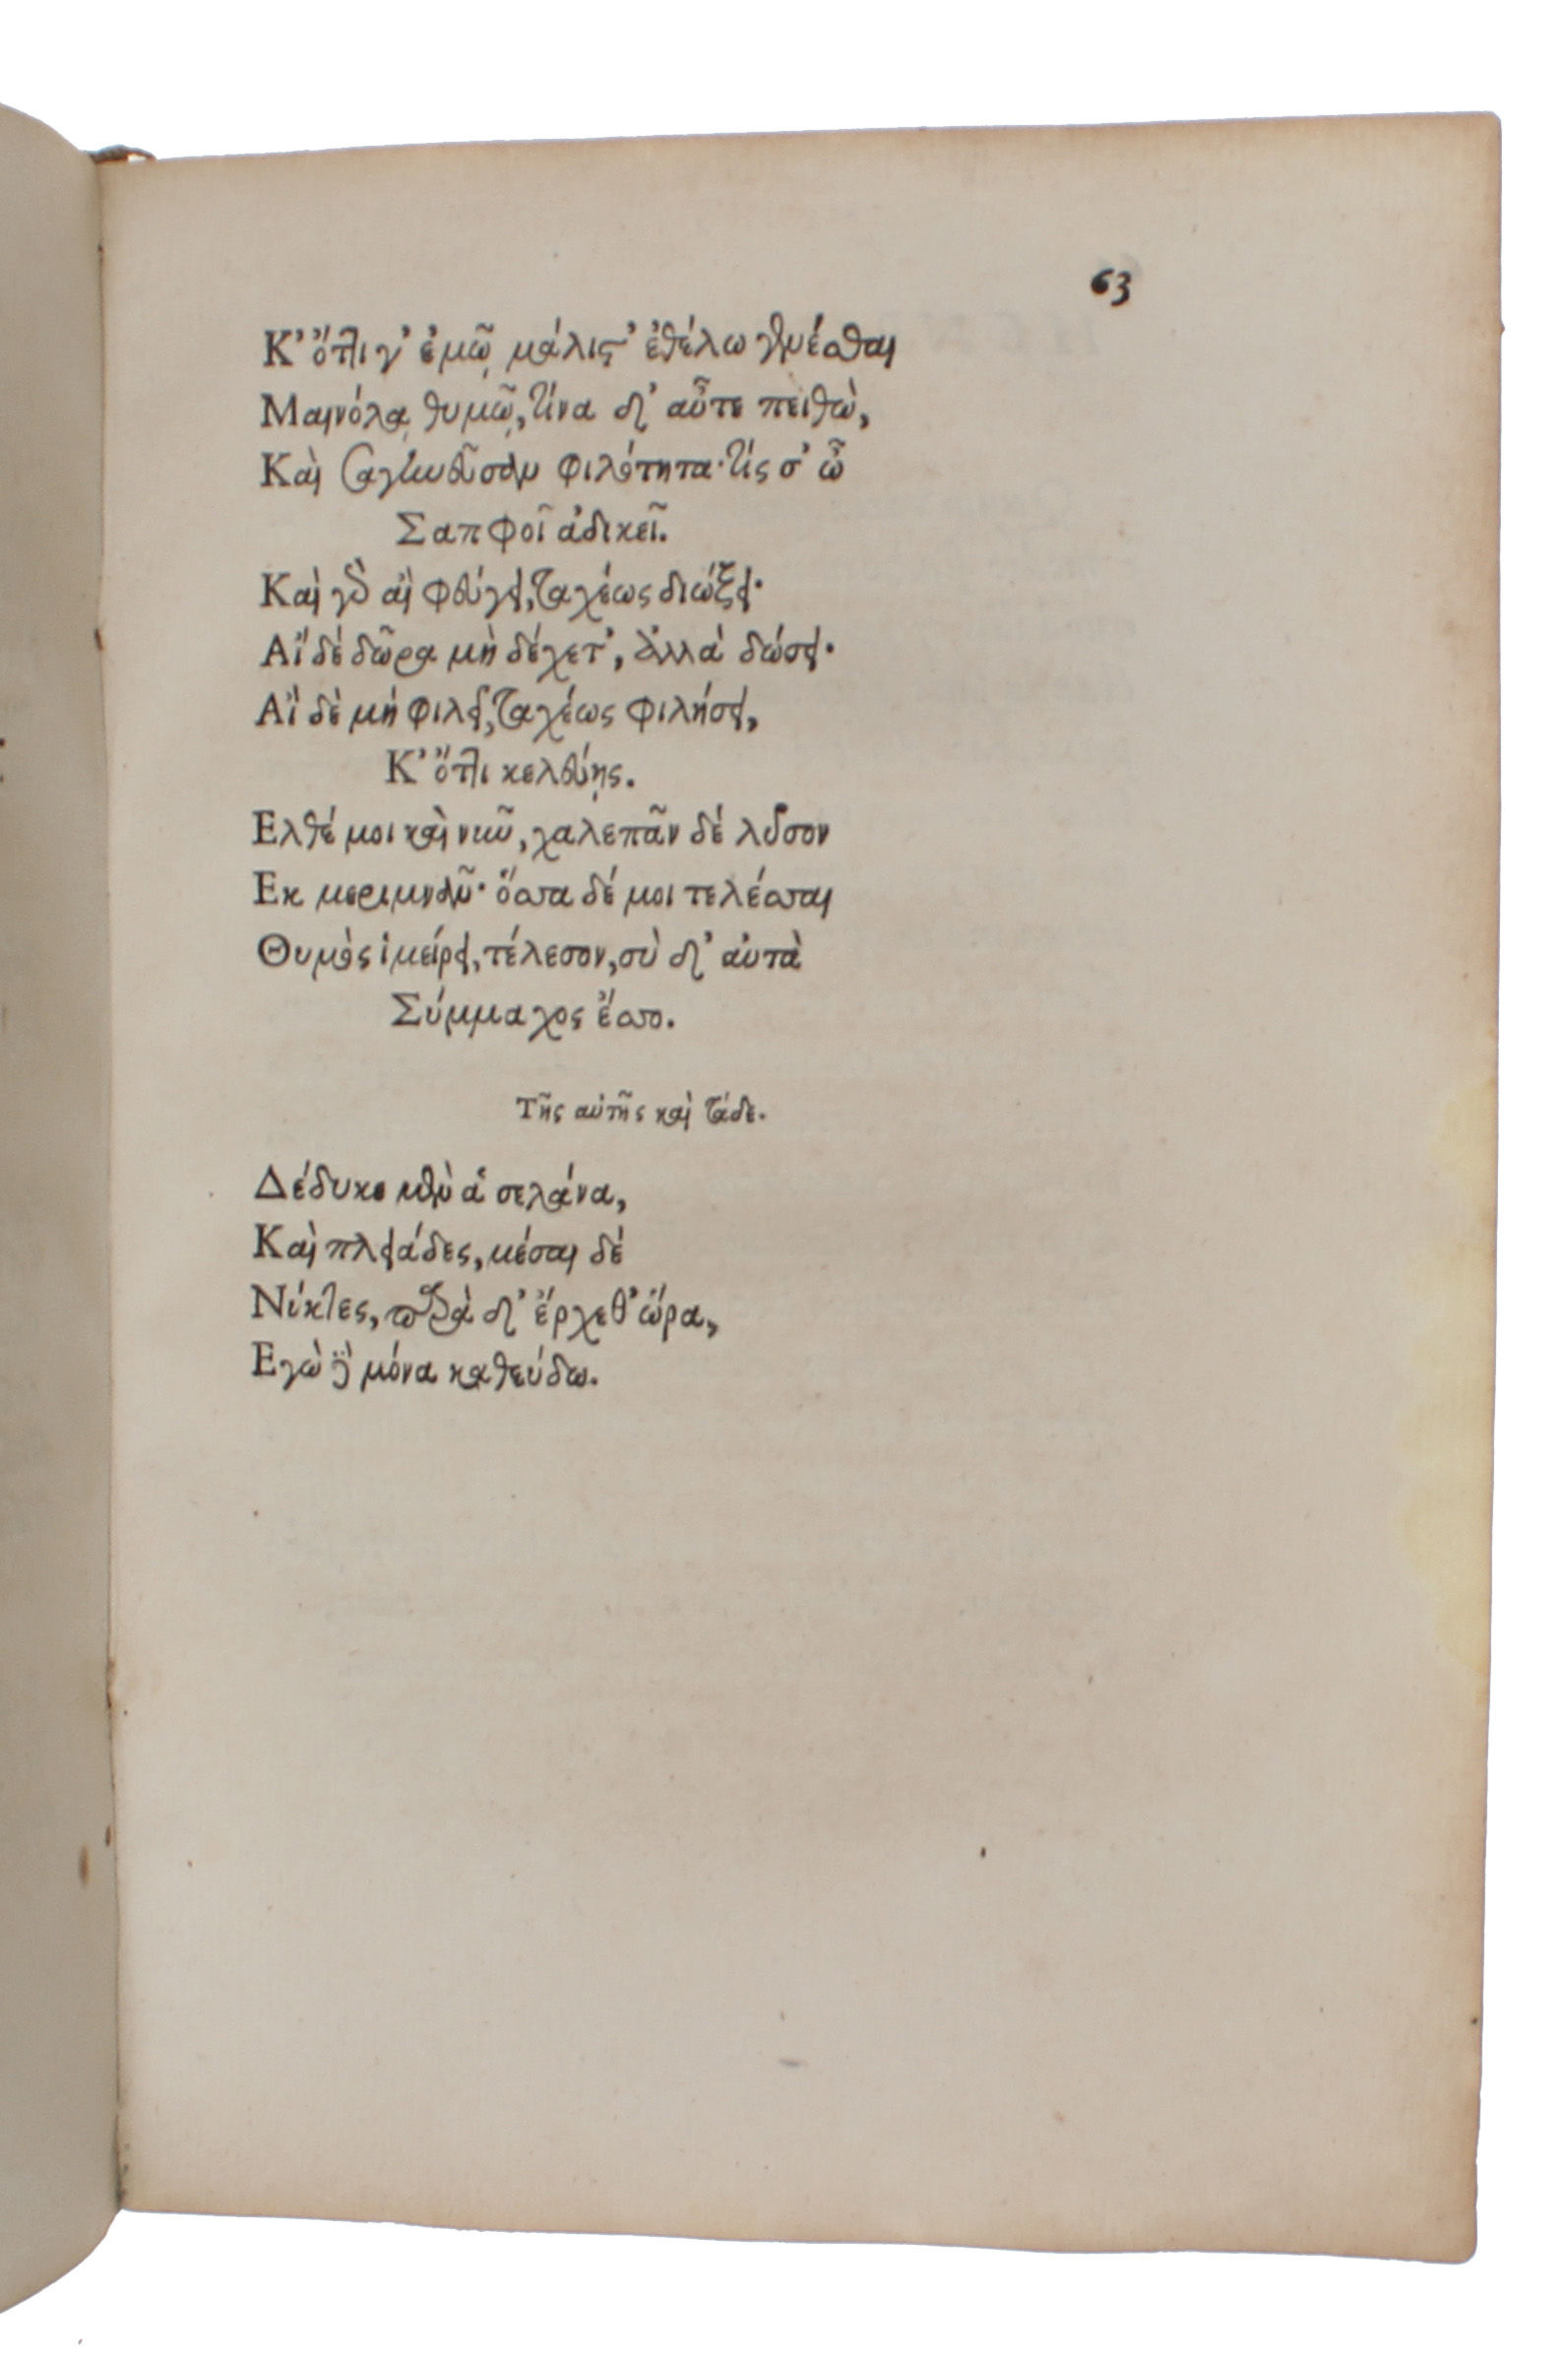 63
Κ’ ὅττι γ’ ἐμῷ μάλιστ’ ἐθέλω γενέσθαι
Μαινόλᾳ θυμῷ, τίνα δ’ αὖτε πειθὼ,
Καὶ σαγηνεῦσαν φιλότητα· τίς σ’ ὦ
Σαπφοῖ ἀδικεῖ.
Καὶ γὰρ αἲ φεύγει, ταχέως διώξει·
Αἲ δὲ δῶρα μὴ δέχετ’, ἀλλὰ δώσει·
Αἲ δὲ μὴ φιλεῖ, ταχέως φιλήσει,
Κ’ ὅττι κελεύῃς.
Ελθέ μοι καὶ νῦν, χαλεπᾶν δὲ λῦσον
Εκ μεριμνᾶν· ὅσσα δέ μοι τελέσσαι
Θυμὸς ἱμείρει, τέλεσον, σὺ δ’ αὐτὰ
Σύμμαχος ἔσσο.
Τῆς αὐτῆς καὶ τάδε.
Δέδυκε μὲν ἁ σελάνα,
Καὶ πλειάδες, μέσαι δὲ
Νύκτες, παρὰ δ’ ἔρχεθ’ ὥρα,
Εγὼ δὲ μόνα καθεύδω.